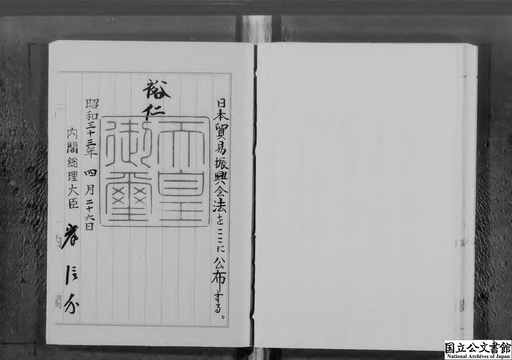 日本貿易振興会法をここに公布する。
裕仁
天皇
御璽
昭和三十三年四月二十六日
内閣総理大臣 岸信介
国立公文書館
National Archives of Japan